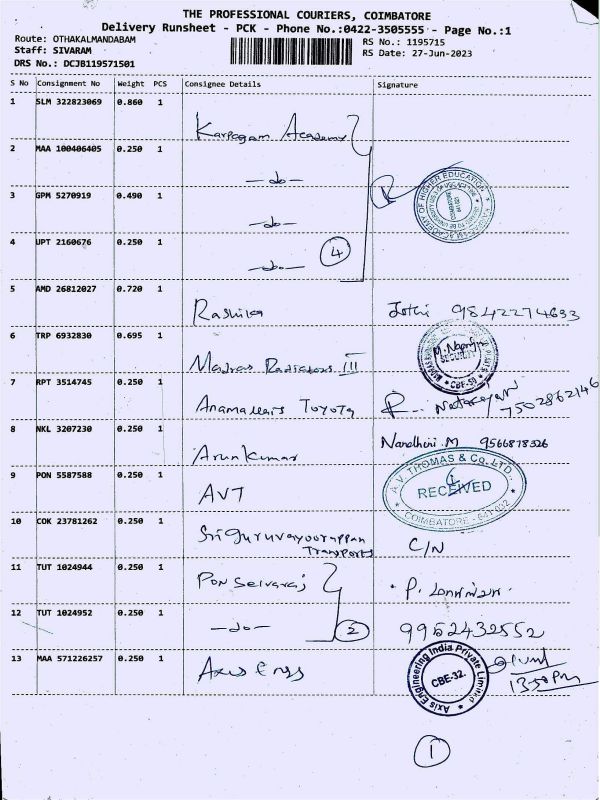 THE PROFESSIONAL COURIERS, COIMBATORE
Delivery Runsheet - PCK - Phone No.:0422-3505555 - Page No.:1
Route: OTHAKALMANDABAM RS No.: 1195715
Staff: SIVARAM RS Date: 27-Jun-2023
DRS No.: DCJB119571501
S No Consignment No Weight PCS Consignee Details Signature
1 SLM 322823069 0.860 1 Karpagam Academy
2 MAA 100406405 0.250 1 -do-
3 GPM 5270919 0.490 1 -do-
4 UPT 2160676 0.250 1 -do- 4
ACADEMY OF HIGHER EDUCATION
5 AMD 26812027 0.720 1 Rashika Jothi 9842274633
6 TRP 6932830 0.695 1 Madras Radiators III
SECURITY
CBE-50
7 RPT 3514745 0.250 1 Anamallais Toyota R... Natarajan 7502862146
8 NKL 3207230 0.250 1 Arunkumar Nandhini.M 9566878526
9 PON 5587588 0.250 1 AVT
A.V. THOMAS & Co. LTD.,
RECEIVED
COIMBATORE - 641 032
10 COK 23781262 0.250 1 Sri Guruvayoorappan Transports C/N
11 TUT 1024944 0.250 1 Pon Selvaraj P.
12 TUT 1024952 0.250 1 -do- 2 9952432552
13 MAA 571226257 0.250 1 Axis Engg
Axis Engineering India Private Limited
CBE-32.
13:50 PM
1